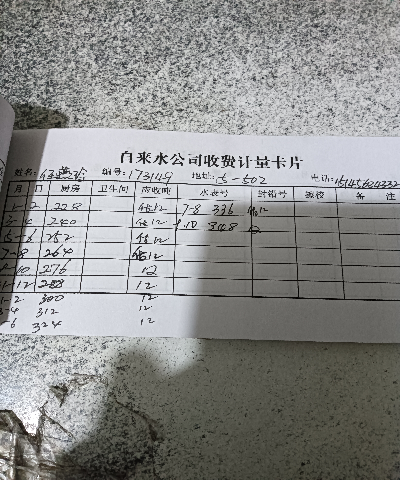 自来水公司收费计量卡片
姓名: 编号: 173149 地址: 5-502 电话: 15145604332
月 日 厨房 卫生间 应收吨 水表号 封铅号 换校 备 注
1-2 228 估12 7-8 336 估12
3-4 240 估12 9.10 348 12
5-6 252 估12
7-8 264 估12
9-10 276 12
11-12 288 12
1-2 300 12
3-4 312 12
5-6 324 12